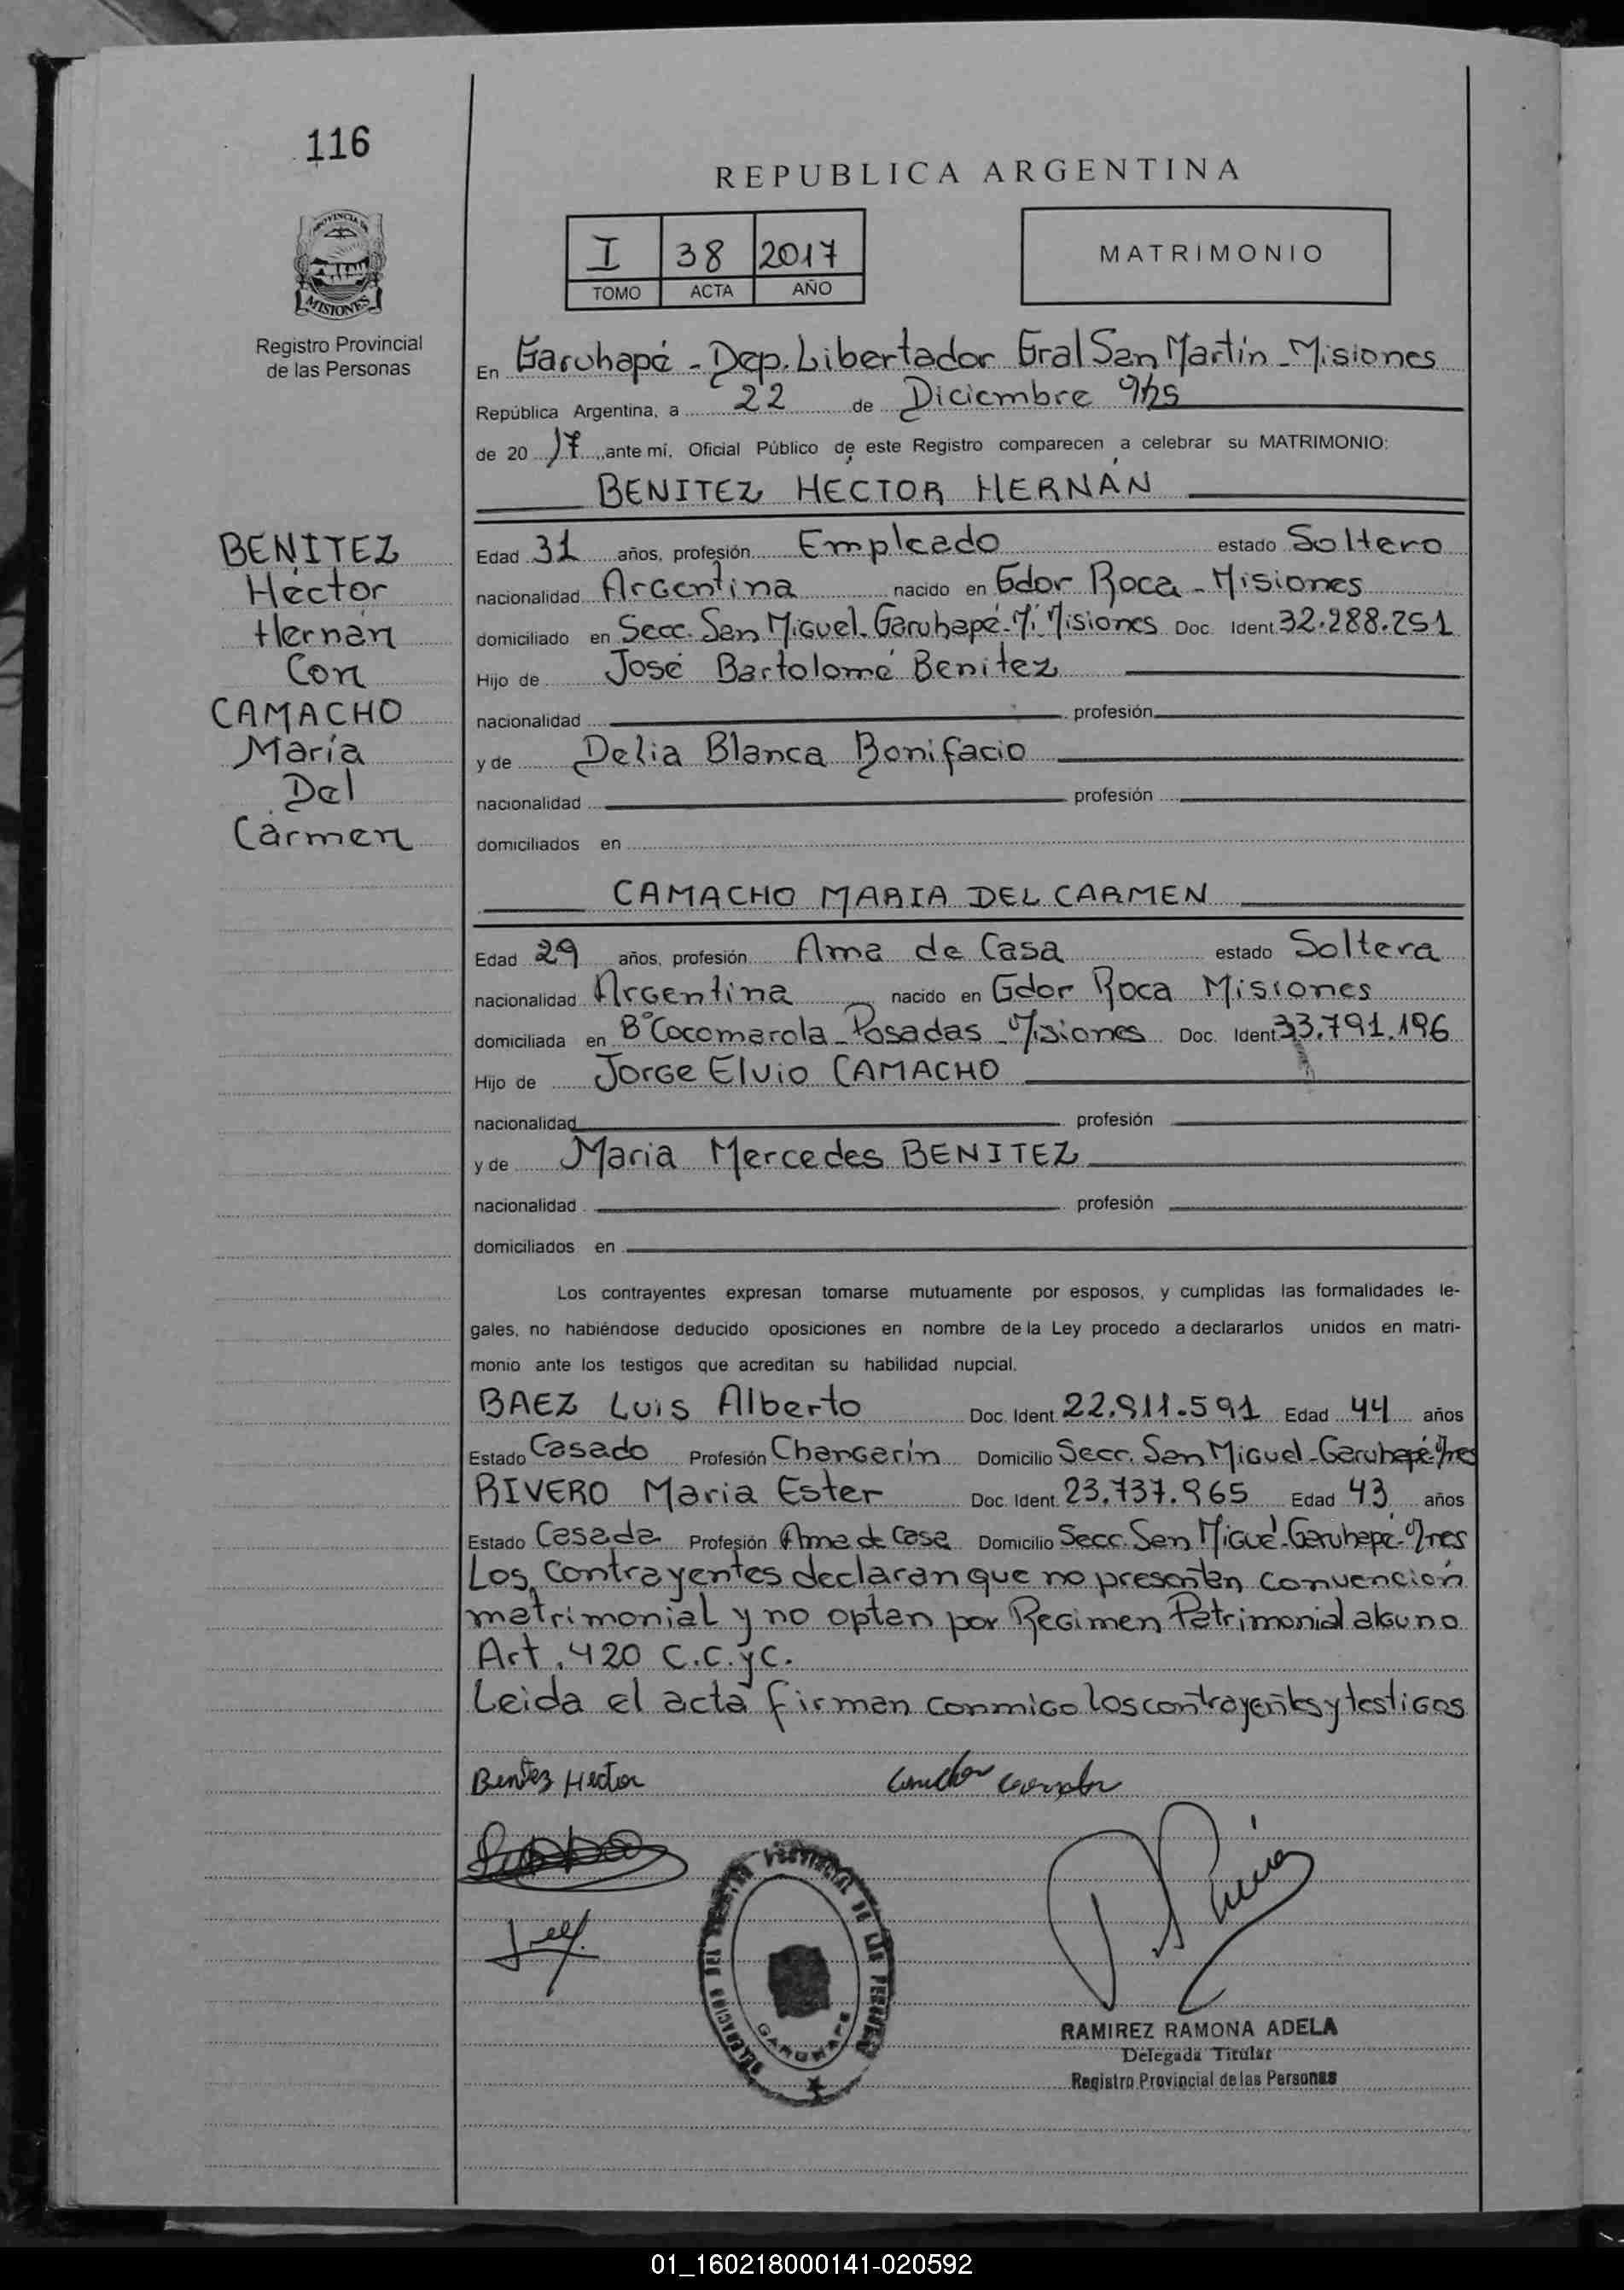 116
REPUBLICA ARGENTINA
PROVINCIA DE
MISIONES
I 38 2017
TOMO ACTA AÑO
MATRIMONIO
Registro Provincial
de las Personas
En Garuhapé - Dep. Libertador Gral San Martín - Misiones
República Argentina, a 22 de Diciembre 9hs
de 2017, ante mí, Oficial Público de este Registro comparecen a celebrar su MATRIMONIO:
BENITEZ HECTOR HERNÁN
BENITEZ
Héctor
Hernán
Con
CAMACHO
María
Del
Cármen
Edad 31 años, profesión Empleado estado Soltero
nacionalidad Argentina nacido en Gdor Roca - Misiones
domiciliado en Secc. San Miguel - Garuhapé - Mi Misiones Doc. Ident. 32.288.251
Hijo de José Bartolomé Benitez
nacionalidad profesión
y de Delia Blanca Bonifacio
nacionalidad profesión
domiciliados en
CAMACHO MARIA DEL CARMEN
Edad 29 años, profesión Ama de Casa estado Soltera
nacionalidad Argentina nacido en Gdor Roca Misiones
domiciliada en B° Cocomarola - Posadas - Misiones Doc. Ident. 33.791.196
Hijo de Jorge Elvio CAMACHO
nacionalidad profesión
y de Maria Mercedes BENITEZ
nacionalidad profesión
domiciliados en
Los contrayentes expresan tomarse mutuamente por esposos, y cumplidas las formalidades le-
gales, no habiéndose deducido oposiciones en nombre de la Ley procedo a declararlos unidos en matri-
monio ante los testigos que acreditan su habilidad nupcial.
BAEZ Luis Alberto Doc. Ident. 22.911.591 Edad 44 años
Estado Casado Profesión Changarín Domicilio Secc. San Miguel - Garuhapé Mnes
RIVERO Maria Ester Doc. Ident. 23.737.965 Edad 43 años
Estado Casada Profesión Ama de Casa Domicilio Secc. San Migué - Garuhapé - Mnes
Los Contrayentes declaran que no presentan convención
matrimonial y no optan por Regimen Patrimonial alguno
Art. 420 C.C.yC.
Leida el acta firman conmigo los contrayentes y testigos
Benitez Hector
REGISTRO PROVINCIAL DE LAS PERSONAS
GARUHAPE
RAMIREZ RAMONA ADELA
Delegada Titular
Registro Provincial de las Personas
01_160218000141-020592